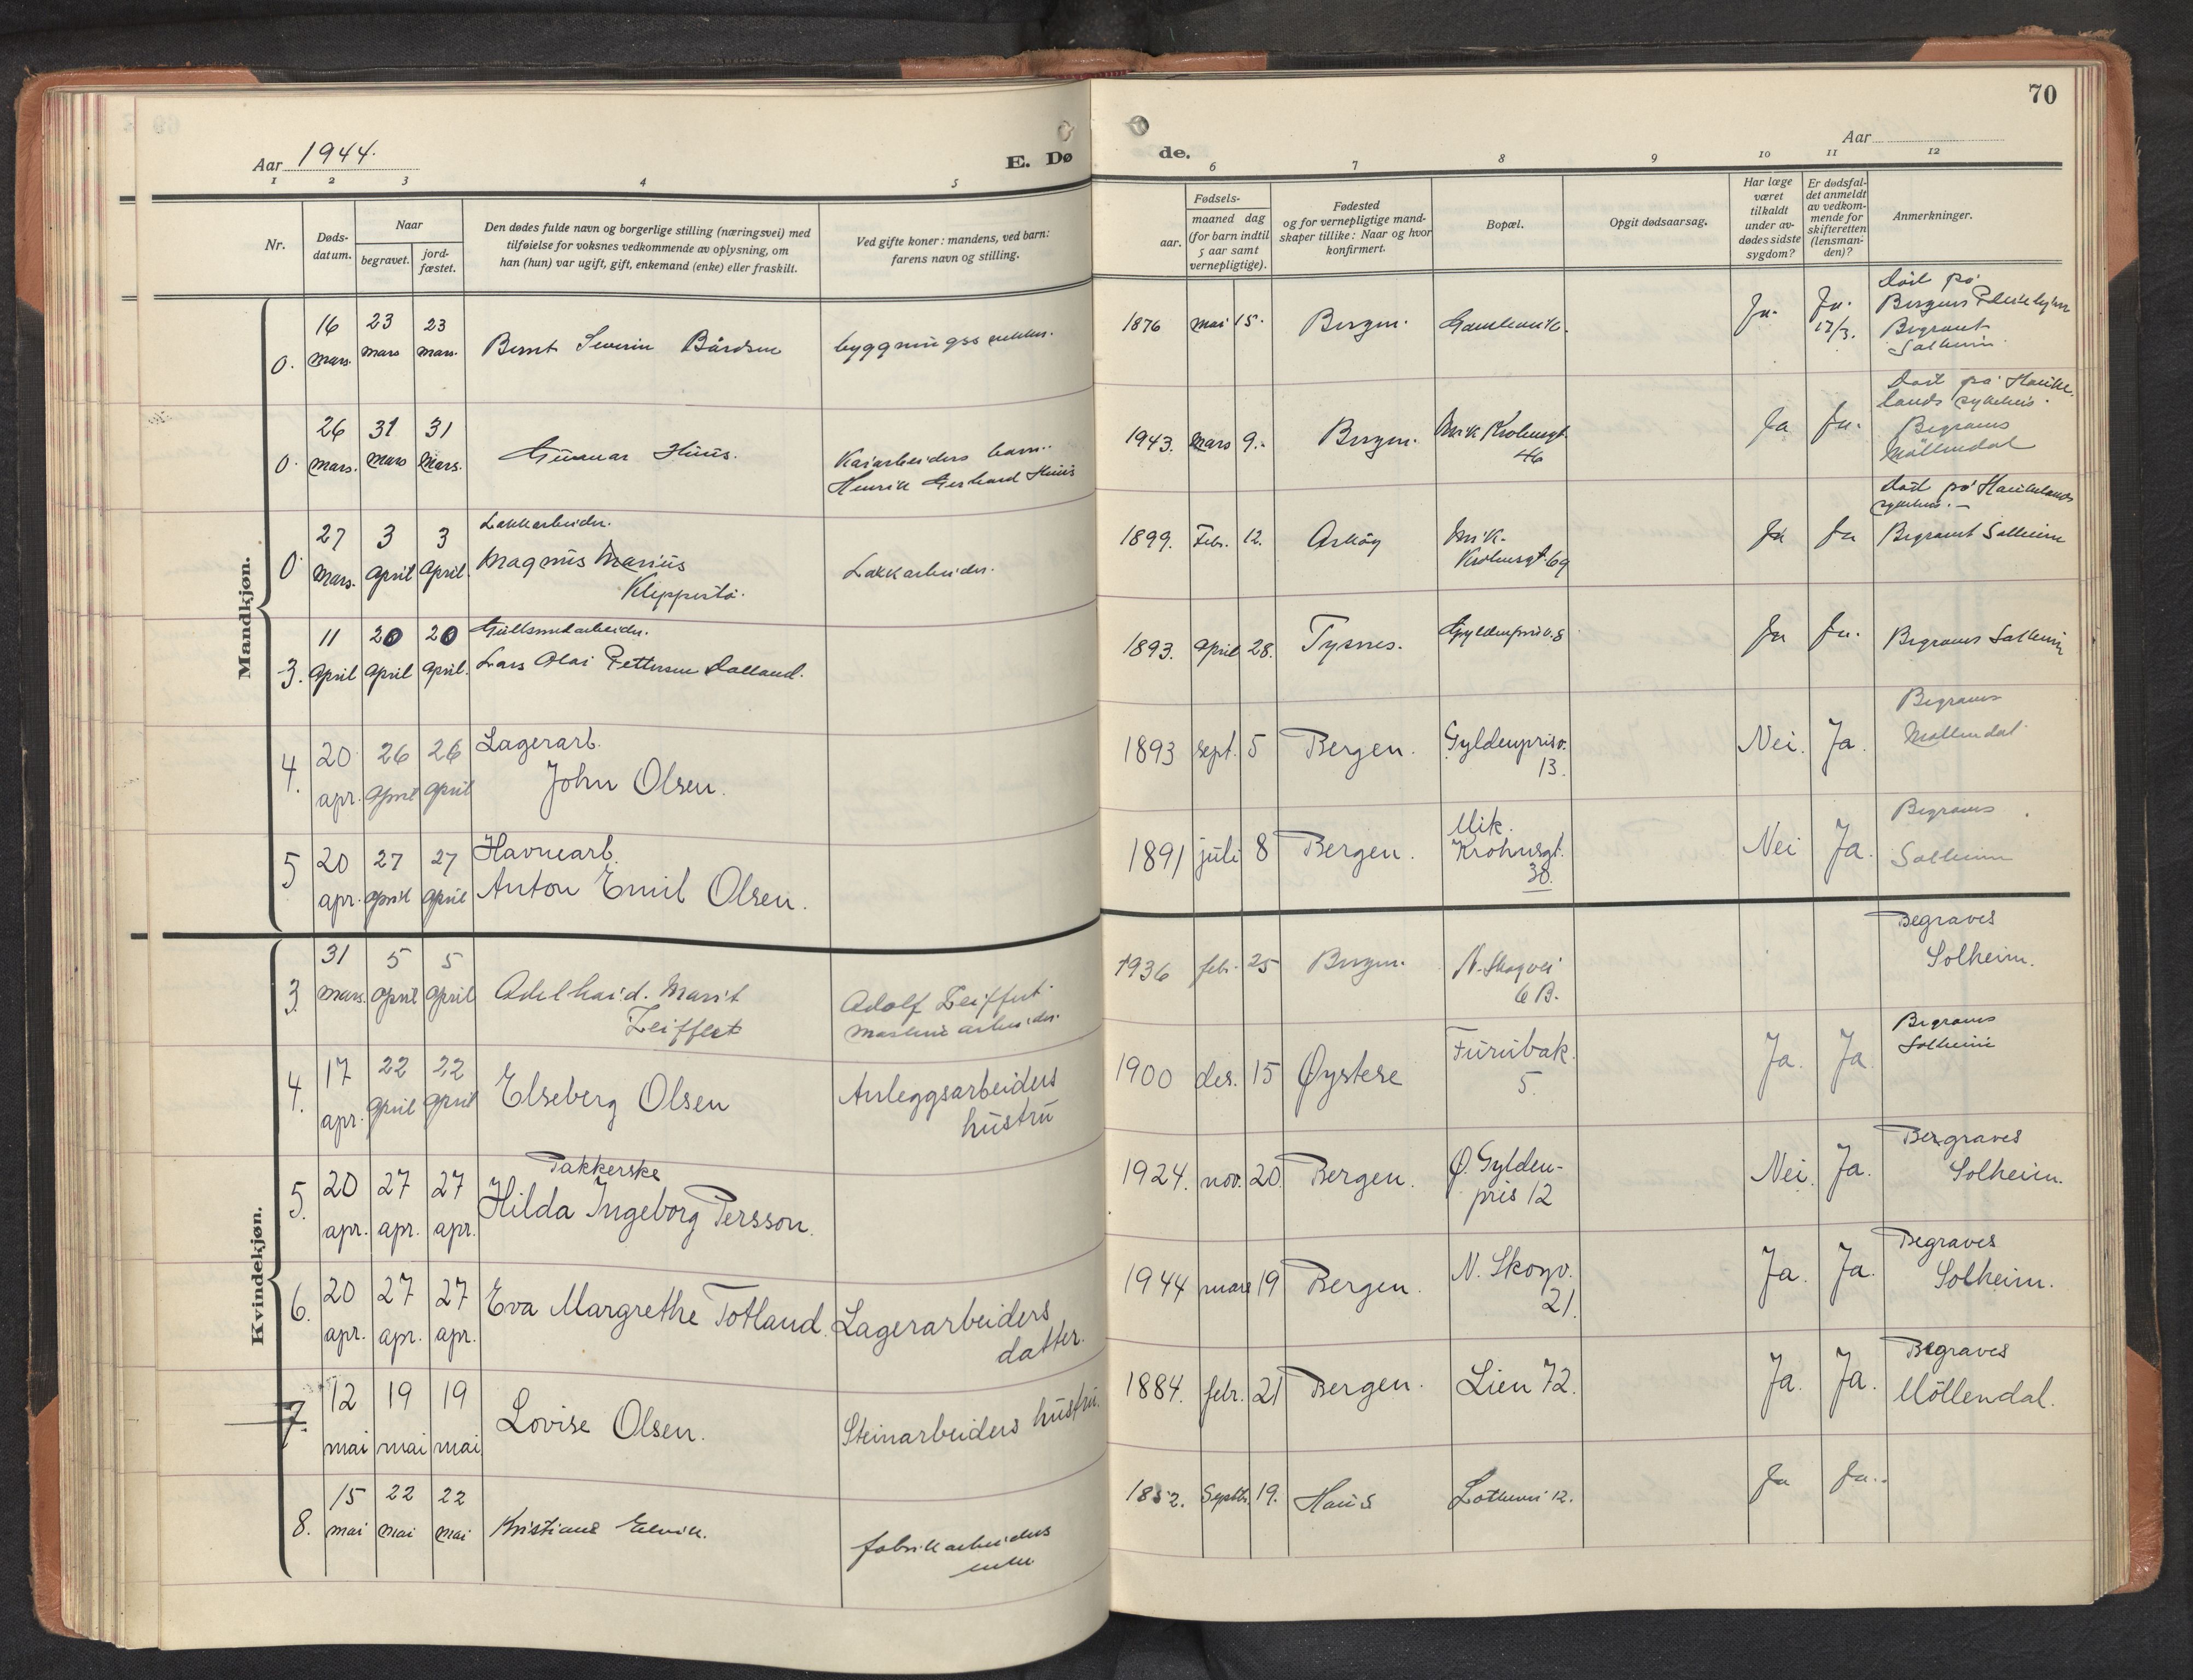 70
Aar 1944.
E. Dø
de.
Aar
1 2 3 4 5
6 7 8 9 10 11 12
Nr.
Døds-
datum.
Naar
begravet.
jord-
fæstet.
Den dødes fulde navn og borgerlige stilling (næringsvei) med
tilføielse for voksnes vedkommende av oplysning, om
han (hun) var ugift, gift, enkemand (enke) eller fraskilt.
Ved gifte koner: mandens, ved barn:
farens navn og stilling.
Fødsels-
aar.
maaned dag
(for barn indtil
5 aar samt
vernepligtige).
Fødested
og for vernepligtige mand-
skaper tillike: Naar og hvor
konfirmert.
Bopæl.
Opgit dødsaarsag.
Har læge
været
tilkaldt
under av-
dødes sidste
sygdom?
Er dødsfal-
det anmeldt
av vedkom-
mende for
skifteretten
(lensman-
den)?
Anmerkninger.
Mandkjøn.
0. 16 mars. 23 mars 23 mars.
Bernt Severin Bårdsen
1876 mai 15. Bergen.
Ja. Ja. 17/3.
Død på
Bergens Pleiehjem
Begravet
Solheim.
0. 26 mars. 31 mars 31 mars.
Gunnar Huus.
Kaiarbeiders barn.
Henrik Gerhard Huus
1943. mars 9. Bergen.
Mik Krohnsgt.
46
Ja Ja.
Død på Hauke-
lands sykehus.
Begraves
Møllendal
0. 27 mars. 3 april 3 april.
Lakkarbeider.
Magnus Marius
Klippestø.
Lakkarbeider.
1899. Febr. 12. Askøy
Mik.
Krohnsgt. 69
Ja Ja
Død på Haukelands
sykehus.
Begravet Solheim
3. 11 april 20 april 20 april.
Gullsmedarbeider.
Lars Olai Pettersen Dalland.
1893. april 28. Tysnes.
Gyldenprisv. 8
Ja Ja.
Begraves Solheim
4. 20 apr. 26 april 26 april
Lagerarb.
John Olsen.
1893 sept. 5 Bergen.
Gyldenprisv.
13.
Nei. Ja.
Begraves
Møllendal
5 20 apr. 27 april 27 april
Havnearb.
Anton Emil Olsen.
1891 juli 8 Bergen.
Mik.
Krohnsgt.
38.
Nei Ja.
Begraves
Solheim
Kvindekjøn.
3. 31 mars. 5 april 5 april
Adelhaid. Marit
Zeiffert
Adolf Zeiffert
Maskinarbeider.
1936 febr. 25 Bergen.
N. Skogvei
6 B.
Begraves
Solheim.
4. 17 apr. 22 april 22 april
Elseberg Olsen
Anleggsarbeiders
hustru
1900 des. 15 Øystese
Furubak.
5.
Ja. Ja.
Begraves
Solheim
5. 20 apr. 27 apr. 27 apr.
Pakkerske
Hilda Ingeborg Persson.
1924. nov. 20. Bergen.
Ø. Gylden-
pris 12
Nei. Ja.
Begraves
Solheim.
6. 20 apr. 27 apr. 27 apr.
Eva Margrethe Totland.
Lagerarbeiders
datter.
1944 mars 19 Bergen.
N. Skogv.
21.
Ja. Ja.
Begraves
Solheim.
7. 12 mai 19 mai 19 mai
Lovise Olsen.
Steinarbeiders hustru.
1884. febr. 21 Bergen.
Lien 72.
Ja. Ja.
Begraves
Möllendal.
8. 15 mai 22 mai 22 mai
Kristiane
fabrikkarbeiders
enke
1852. Septb. 19. Haus
12.
Ja Ja.